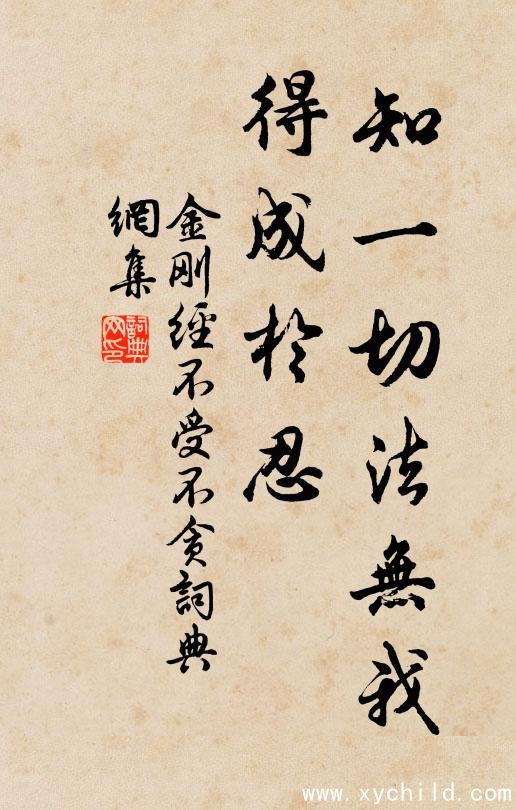 知一切法無我
得成於忍
金刚經不受不貪詞典
網集
詞典
网印
www.xychild.com